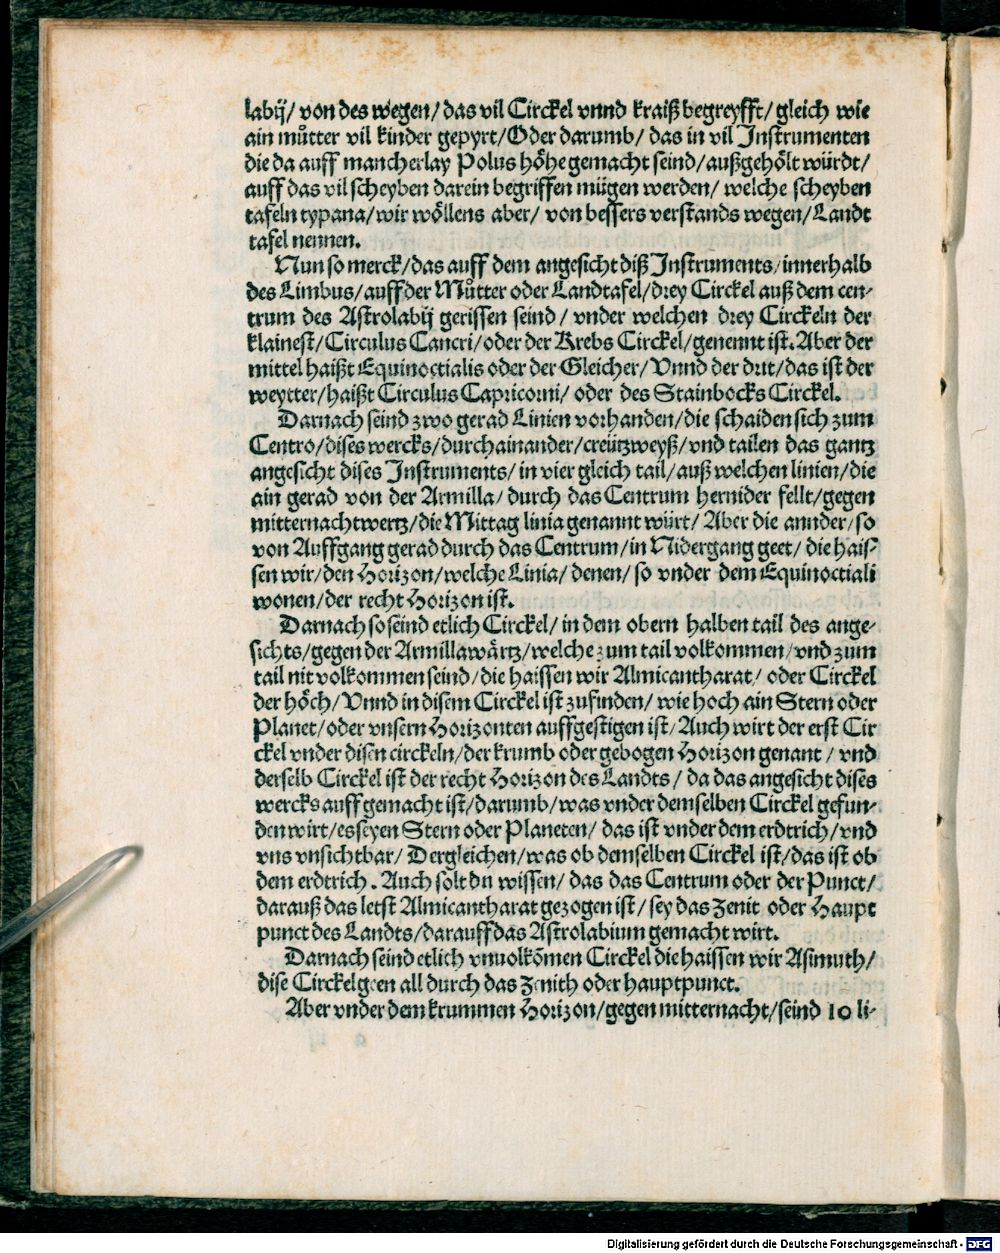 labij/ von des wegen/ das vil Circkel vnnd kraiß begreyfft/ gleich wie
ain můtter vil kinder gepyrt/ Oder darumb/ das in vil Instrumenten
die da auff mancherlay Polus höhe gemacht seind/ außgehölt würdt/
auff das vil scheyben darein begriffen mügen werden/ welche scheyben
tafeln typana/ wir wöllens aber/ von bessers verstands wegen/ Landt
tafel nennen.
Nun so merck/ das auff dem angesicht diß Instruments/ innerhalb
des Limbus/ auff der Můtter oder Landtafel/ drey Circkel auß dem cen-
trum des Astrolabij gerissen seind/ vnder welchen drey Circkeln der
klainest/ Circulus Cancri/ oder der Krebs Circkel/ genennt ist. Aber der
mittel haißt Equinoctialis oder der Gleicher/ Vnnd der drit/ das ist der
weytter/ haißt Circulus Capricorni/ oder des Stainbocks Circkel.
Darnach seind zwo gerad Linien vorhanden/ die schaiden sich zum
Centro/ dises wercks/ durchainander/ creützweyß/ vnd tailen das gantz
angesicht dises Instruments/ in vier gleich tail/ auß welchen linien/ die
ain gerad von der Armilla/ durch das Centrum hernider fellt/ gegen
mitternachtwertz/ die Mittag linia genannt würt/ Aber die annder/ so
von Auffgang gerad durch das Centrum/ in Nidergang geet/ die hais-
sen wir/ den Horizon/ welche Linia/ denen/ so vnder dem Equinoctiali
wonen/ der recht Horizon ist.
Darnach so seind etlich Circkel/ in dem obern halben tail des ange-
sichts/ gegen der Armillawärtz/ welche zum tail volkommen/ vnd zum
tail nit volkommen seind/ die haissen wir Almicantharat/ oder Circkel
der höch/ Vnnd in disem Circkel ist zufinden/ wie hoch ain Stern oder
Planet/ oder vnsern Horizonten auffgestigen ist/ Auch wirt der erst Cir
ckel vnder disen circkeln/ der krumb oder gebogen Horizon genant/ vnd
derselb Circkel ist der recht Horizon des Landts/ da das angesicht dises
wercks auff gemacht ist/ darumb/ was vnder demselben Circkel gefun-
den wirt/ es seyen Stern oder Planeten/ das ist vnder dem erdtrich/ vnd
vns vnsichtbar/ Dergleichen/ was ob demselben Circkel ist/ das ist ob
dem erdtrich. Auch solt du wissen/ das das Centrum oder der Punct/
darauß das letst Almicantharat gezogen ist/ sey das Zenit oder Haupt
punct des Landts/ darauff das Astrolabium gemacht wirt.
Darnach seind etlich vnuolkōmen Circkel die haissen wir Asimuth/
dise Circkel geen all durch das Zenith oder hauptpunct.
Aber vnder dem krummen Horizon/ gegen mitternacht/ seind 10 li-
Digitalisierung gefördert durch die Deutsche Forschungsgemeinschaft - DFG